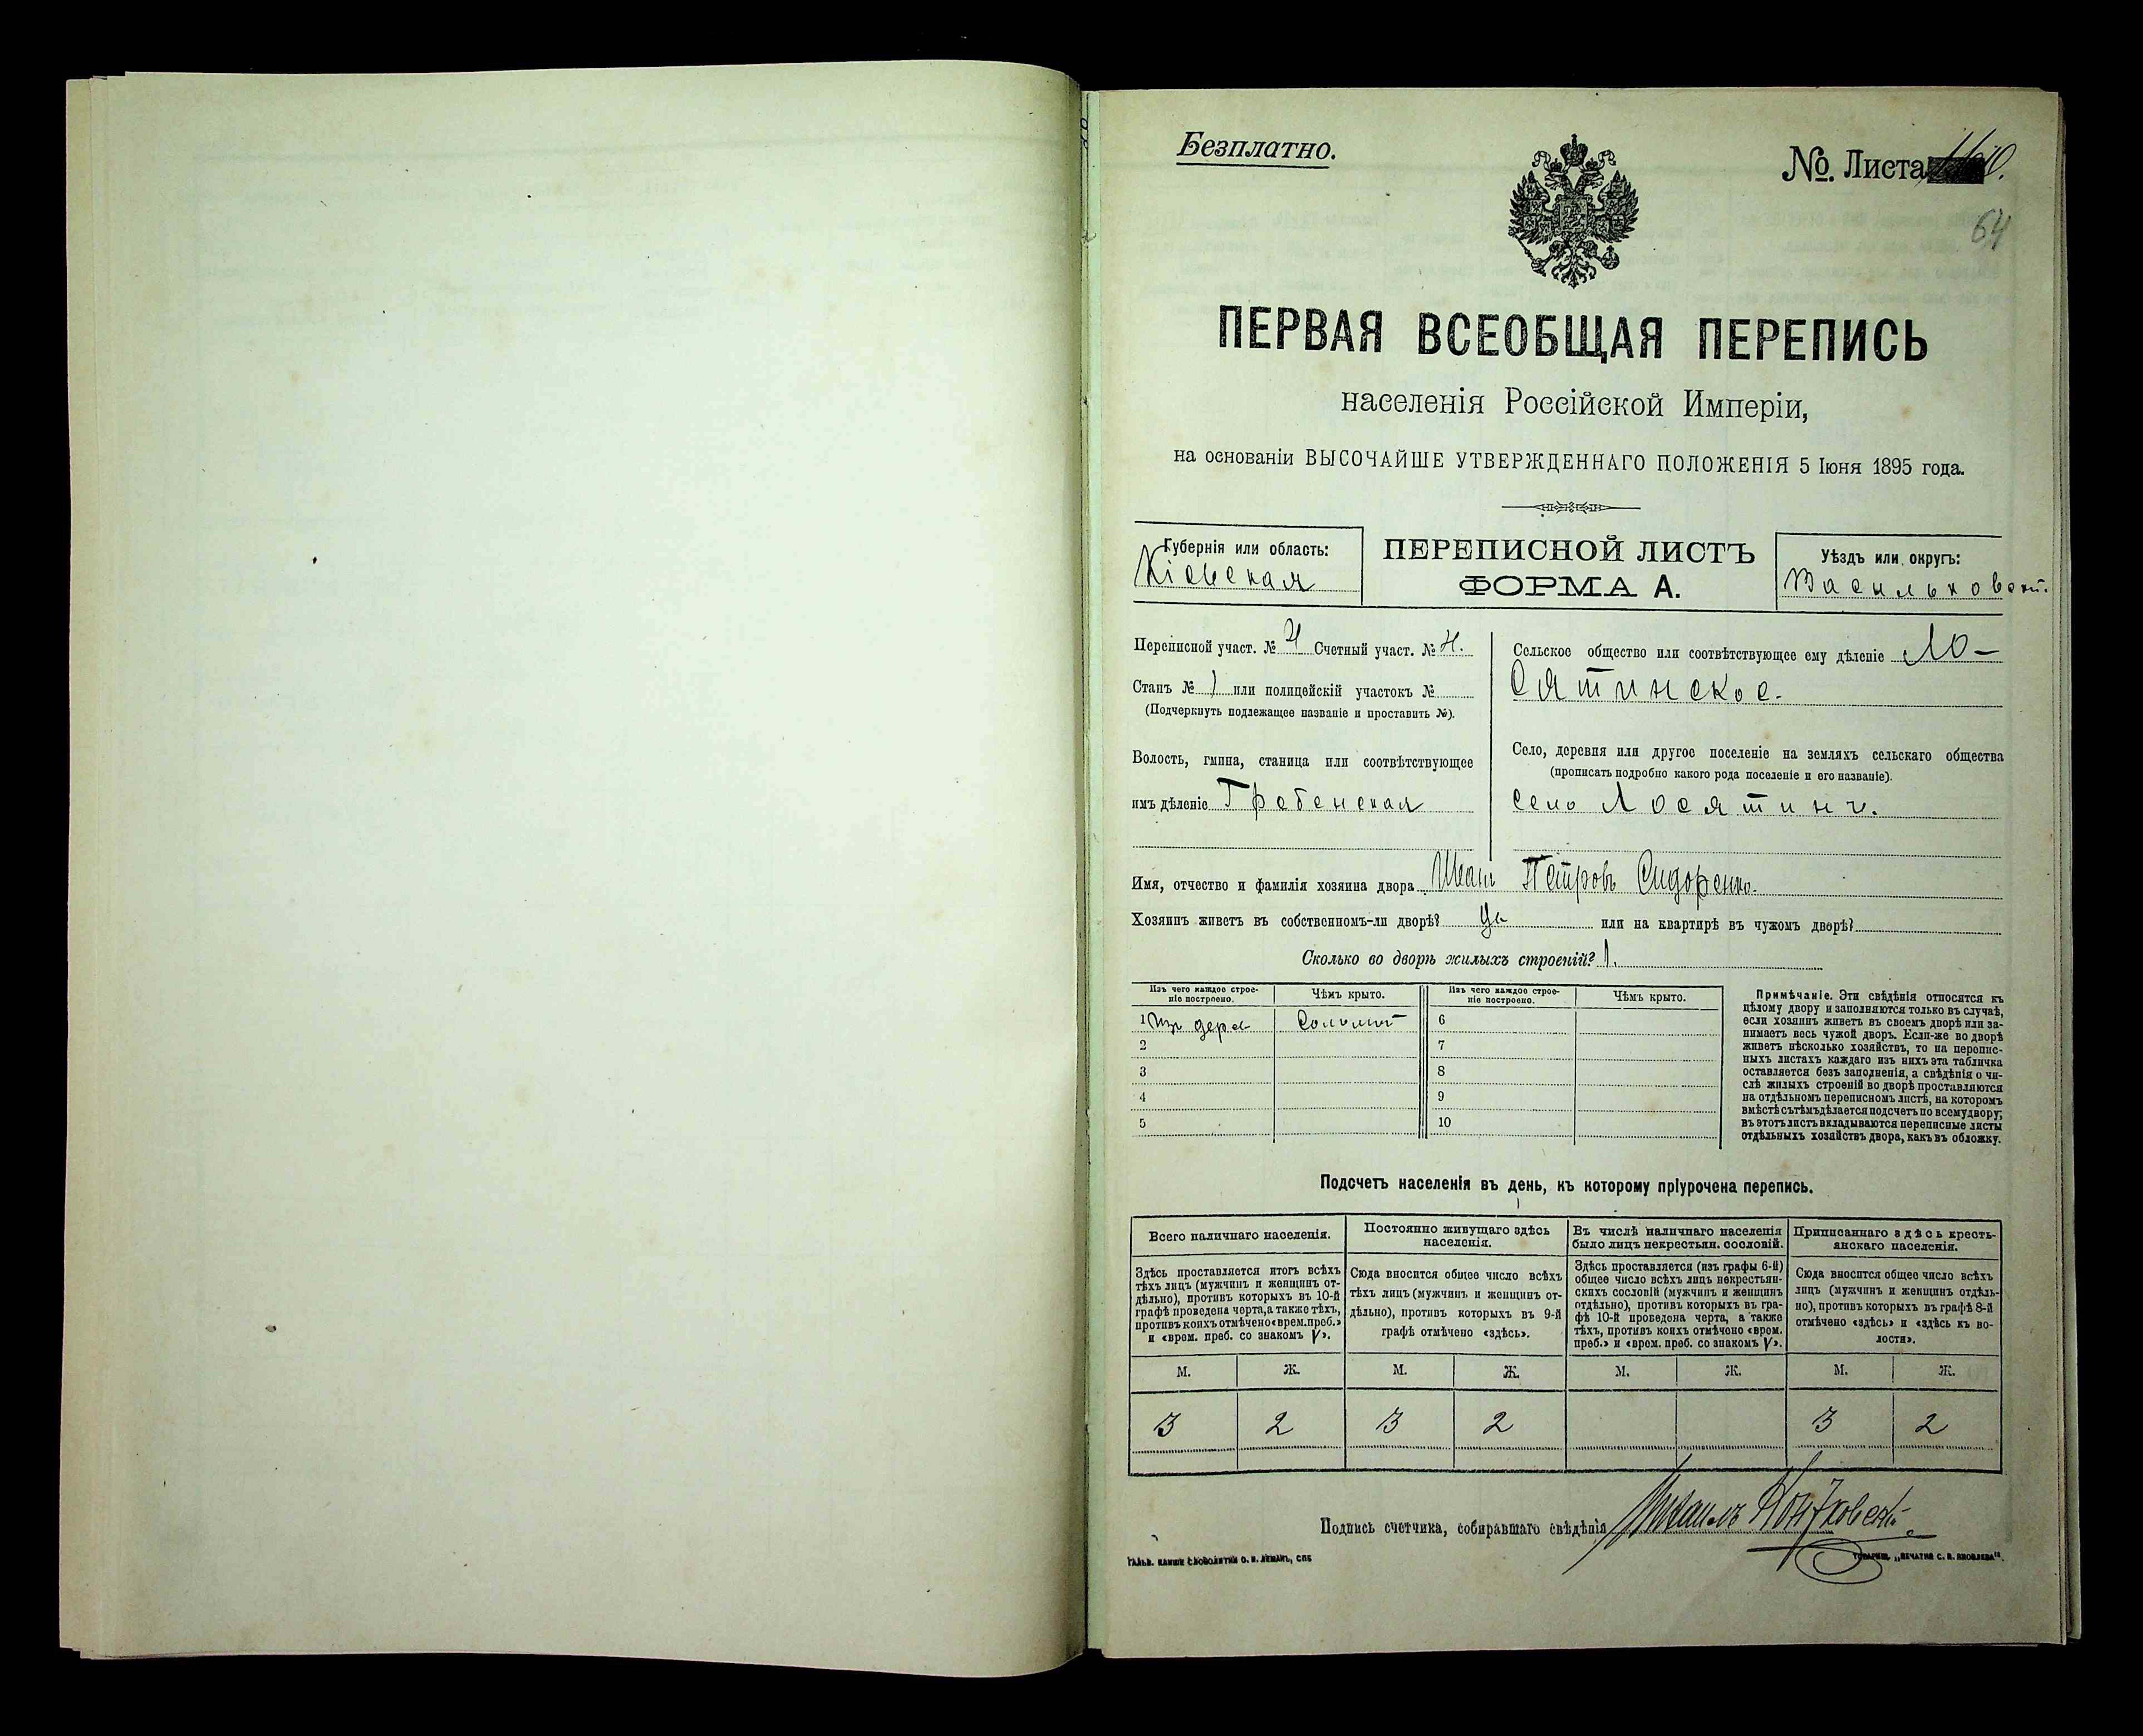 Безплатно.
№. Листа
64
ПЕРВАЯ ВСЕОБЩАЯ ПЕРЕПИСЬ
населенія Россійской Имперіи,
на основаніи ВЫСОЧАЙШЕ УТВЕРЖДЕННАГО ПОЛОЖЕНІЯ 5 Іюня 1895 года.
Губернія или область:
Кіевская
ПЕРЕПИСНОЙ ЛИСТЪ
ФОРМА А.
Уѣздъ или округъ:
Васильковскій.
Переписной участ. № 4 Счетный участ. № 4.
Станъ № 1 или полицейскій участокъ №
(Подчеркнуть подлежащее названіе и проставить №).
Волость, гмина, станица или соотвѣтствующее
имъ дѣленіе Гребенская
Сельское общество или соотвѣтствующее ему дѣленіе Ло-
сятинское.
Село, деревня или другое поселеніе на земляхъ сельскаго общества
(прописать подробно какого рода поселеніе и его названіе).
село Лосятинъ.
Имя, отчество и фамилія хозяина двора Иванъ Петровъ Сидоренко.
Хозяинъ живетъ въ собственномъ-ли дворѣ? да или на квартирѣ въ чужомъ дворѣ?
Сколько во дворѣ жилыхъ строеній? 1.
Изъ чего каждое строе-
ніе построено.
Чѣмъ крыто.
Изъ чего каждое строе-
ніе построено.
Чѣмъ крыто.
1 Изъ дерева Соломой 6
2 7
3 8
4 9
5 10
Примѣчаніе. Эти свѣдѣнія относятся къ
цѣлому двору и заполняются только въ случаѣ,
если хозяинъ живетъ въ своемъ дворѣ или за-
нимаетъ весь чужой дворъ. Если-же во дворѣ
живетъ нѣсколько хозяйствъ, то на перепис-
ныхъ листахъ каждаго изъ нихъ эта табличка
оставляется безъ заполненія, а свѣдѣнія о чи-
слѣ жилыхъ строеній во дворѣ проставляются
на отдѣльномъ переписномъ листѣ, на которомъ
вмѣстѣ съ тѣмъ дѣлается подсчетъ по всему двору;
въ этотъ листъ вкладываются переписные листы
отдѣльныхъ хозяйствъ двора, какъ въ обложку.
Подсчетъ населенія въ день, къ которому пріурочена перепись.
Всего наличнаго населенія.
Здѣсь проставляется итогъ всѣхъ
тѣхъ лицъ (мужчинъ и женщинъ от-
дѣльно), противъ которыхъ въ 10-й
графѣ проведена черта, а также тѣхъ,
противъ коихъ отмѣчено «врем. преб.»
и «врем. преб. со знакомъ V».
Постоянно живущаго здѣсь
населенія.
Сюда вносится общее число всѣхъ
тѣхъ лицъ (мужчинъ и женщинъ от-
дѣльно), противъ которыхъ въ 9-й
графѣ отмѣчено «здѣсь».
Въ числѣ наличнаго населенія
было лицъ некрестьян. сословій.
Здѣсь проставляется (изъ графы 6-й)
общее число всѣхъ лицъ некрестьян-
скихъ сословій (мужчинъ и женщинъ
отдѣльно), противъ которыхъ въ гра-
фѣ 10-й проведена черта, а также
тѣхъ, противъ коихъ отмѣчено «врем.
преб.» и «врем. преб. со знакомъ V».
Приписаннаго здѣсь кресть-
янскаго населенія.
Сюда вносится общее число всѣхъ
лицъ (мужчинъ и женщинъ отдѣль-
но), противъ которыхъ въ графѣ 8-й
отмѣчено «здѣсь» и «здѣсь къ во-
лости».
М. Ж. М. Ж. М. Ж. М. Ж.
3 2 3 2 3 2
Подпись счетчика, собиравшаго свѣдѣнія Михаилъ
ГАЛЬВ. КЛИШЕ СЛОВОЛИТНИ О. И. ЛЕМАНЪ, СПБ
ТОВАРИЩ. „ПЕЧАТНЯ С. П. ЯКОВЛЕВА".